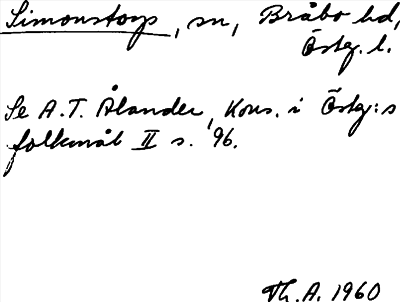 Simonstorps, sn, Bråbo hd,
Östg. l.
Se A.T. Ålander, Kons. i Östg:s
folkmål II s. 96.
Th. A. 1960